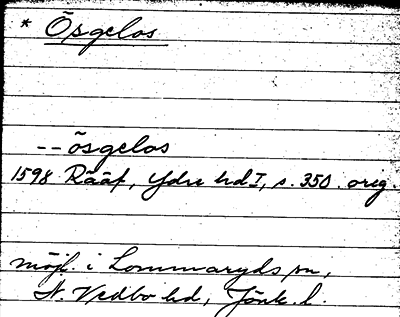 * Õsgelos
-- õsgelos
1598 Rääf, Ydre hd I, s. 350. orig.
möjl. i Lommaryds sn,
N. Vedbo hd, Jönk. l.